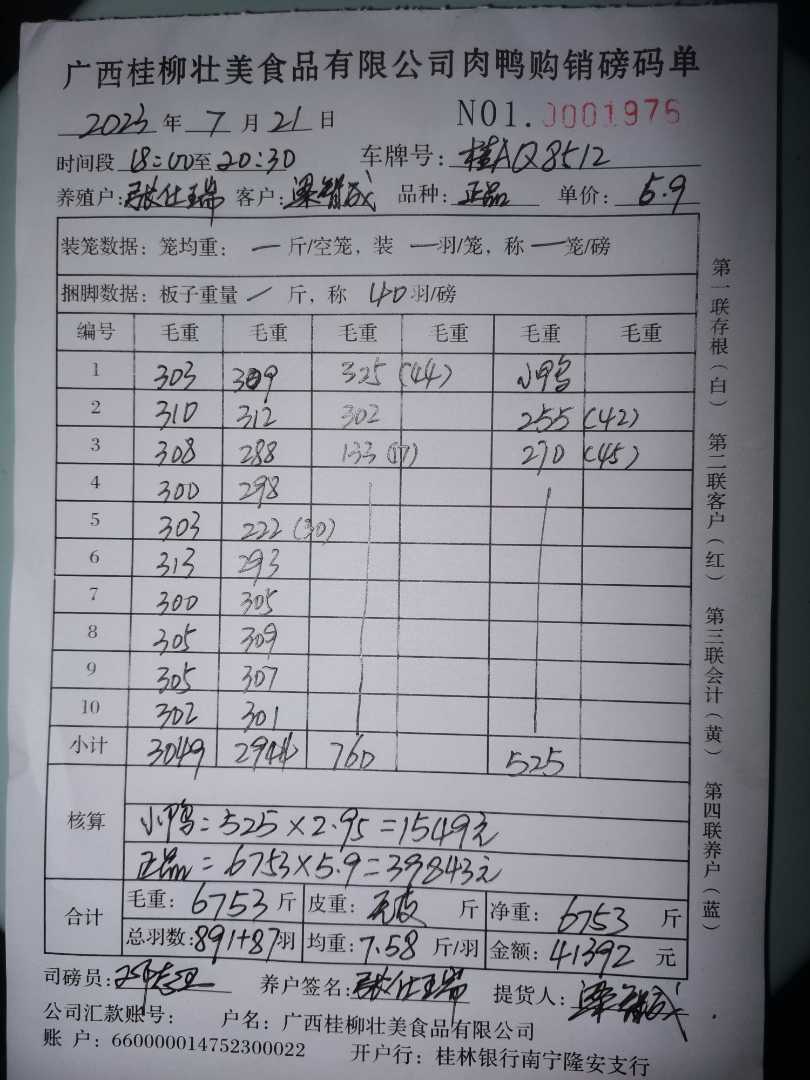 广西桂柳壮美食品有限公司肉鸭购销磅码单
2023年 7 月 21 日 NO1.0001976
时间段 18:00至20:30 车牌号: 桂AQ8512
养殖户:张仕瑞 客户:梁智成 品种: 正品 单价: 5.9
装笼数据: 笼均重: 一 斤/空笼, 装 一羽/笼, 称 一 笼/磅
捆脚数据: 板子重量 / 斤, 称 40 羽/磅
编号 毛重 毛重 毛重 毛重 毛重 毛重
1 303 309 325 (44) 小鸭
2 310 312 302 255 (42)
3 308 288 133 (17) 270 (45)
4 300 298
5 303 222 (30)
6 313 293
7 300 305
8 305 309
9 305 307
10 302 301
小计 3049 2944 760 525
核算
小鸭=525×2.95=1549元
正品=6753×5.9=39843元
合计
毛重: 6753 斤 皮重: 无皮 斤 净重: 6753 斤
总羽数:891+87羽 均重:7.58 斤/羽 金额: 41392 元
司磅员: 养户签名:张仕瑞 提货人: 梁智成
公司汇款账号: 户名: 广西桂柳壮美食品有限公司
账 户: 660000014752300022 开户行: 桂林银行南宁隆安支行
第一联存根(白) 第二联客户(红) 第三联会计(黄) 第四联养户(蓝)